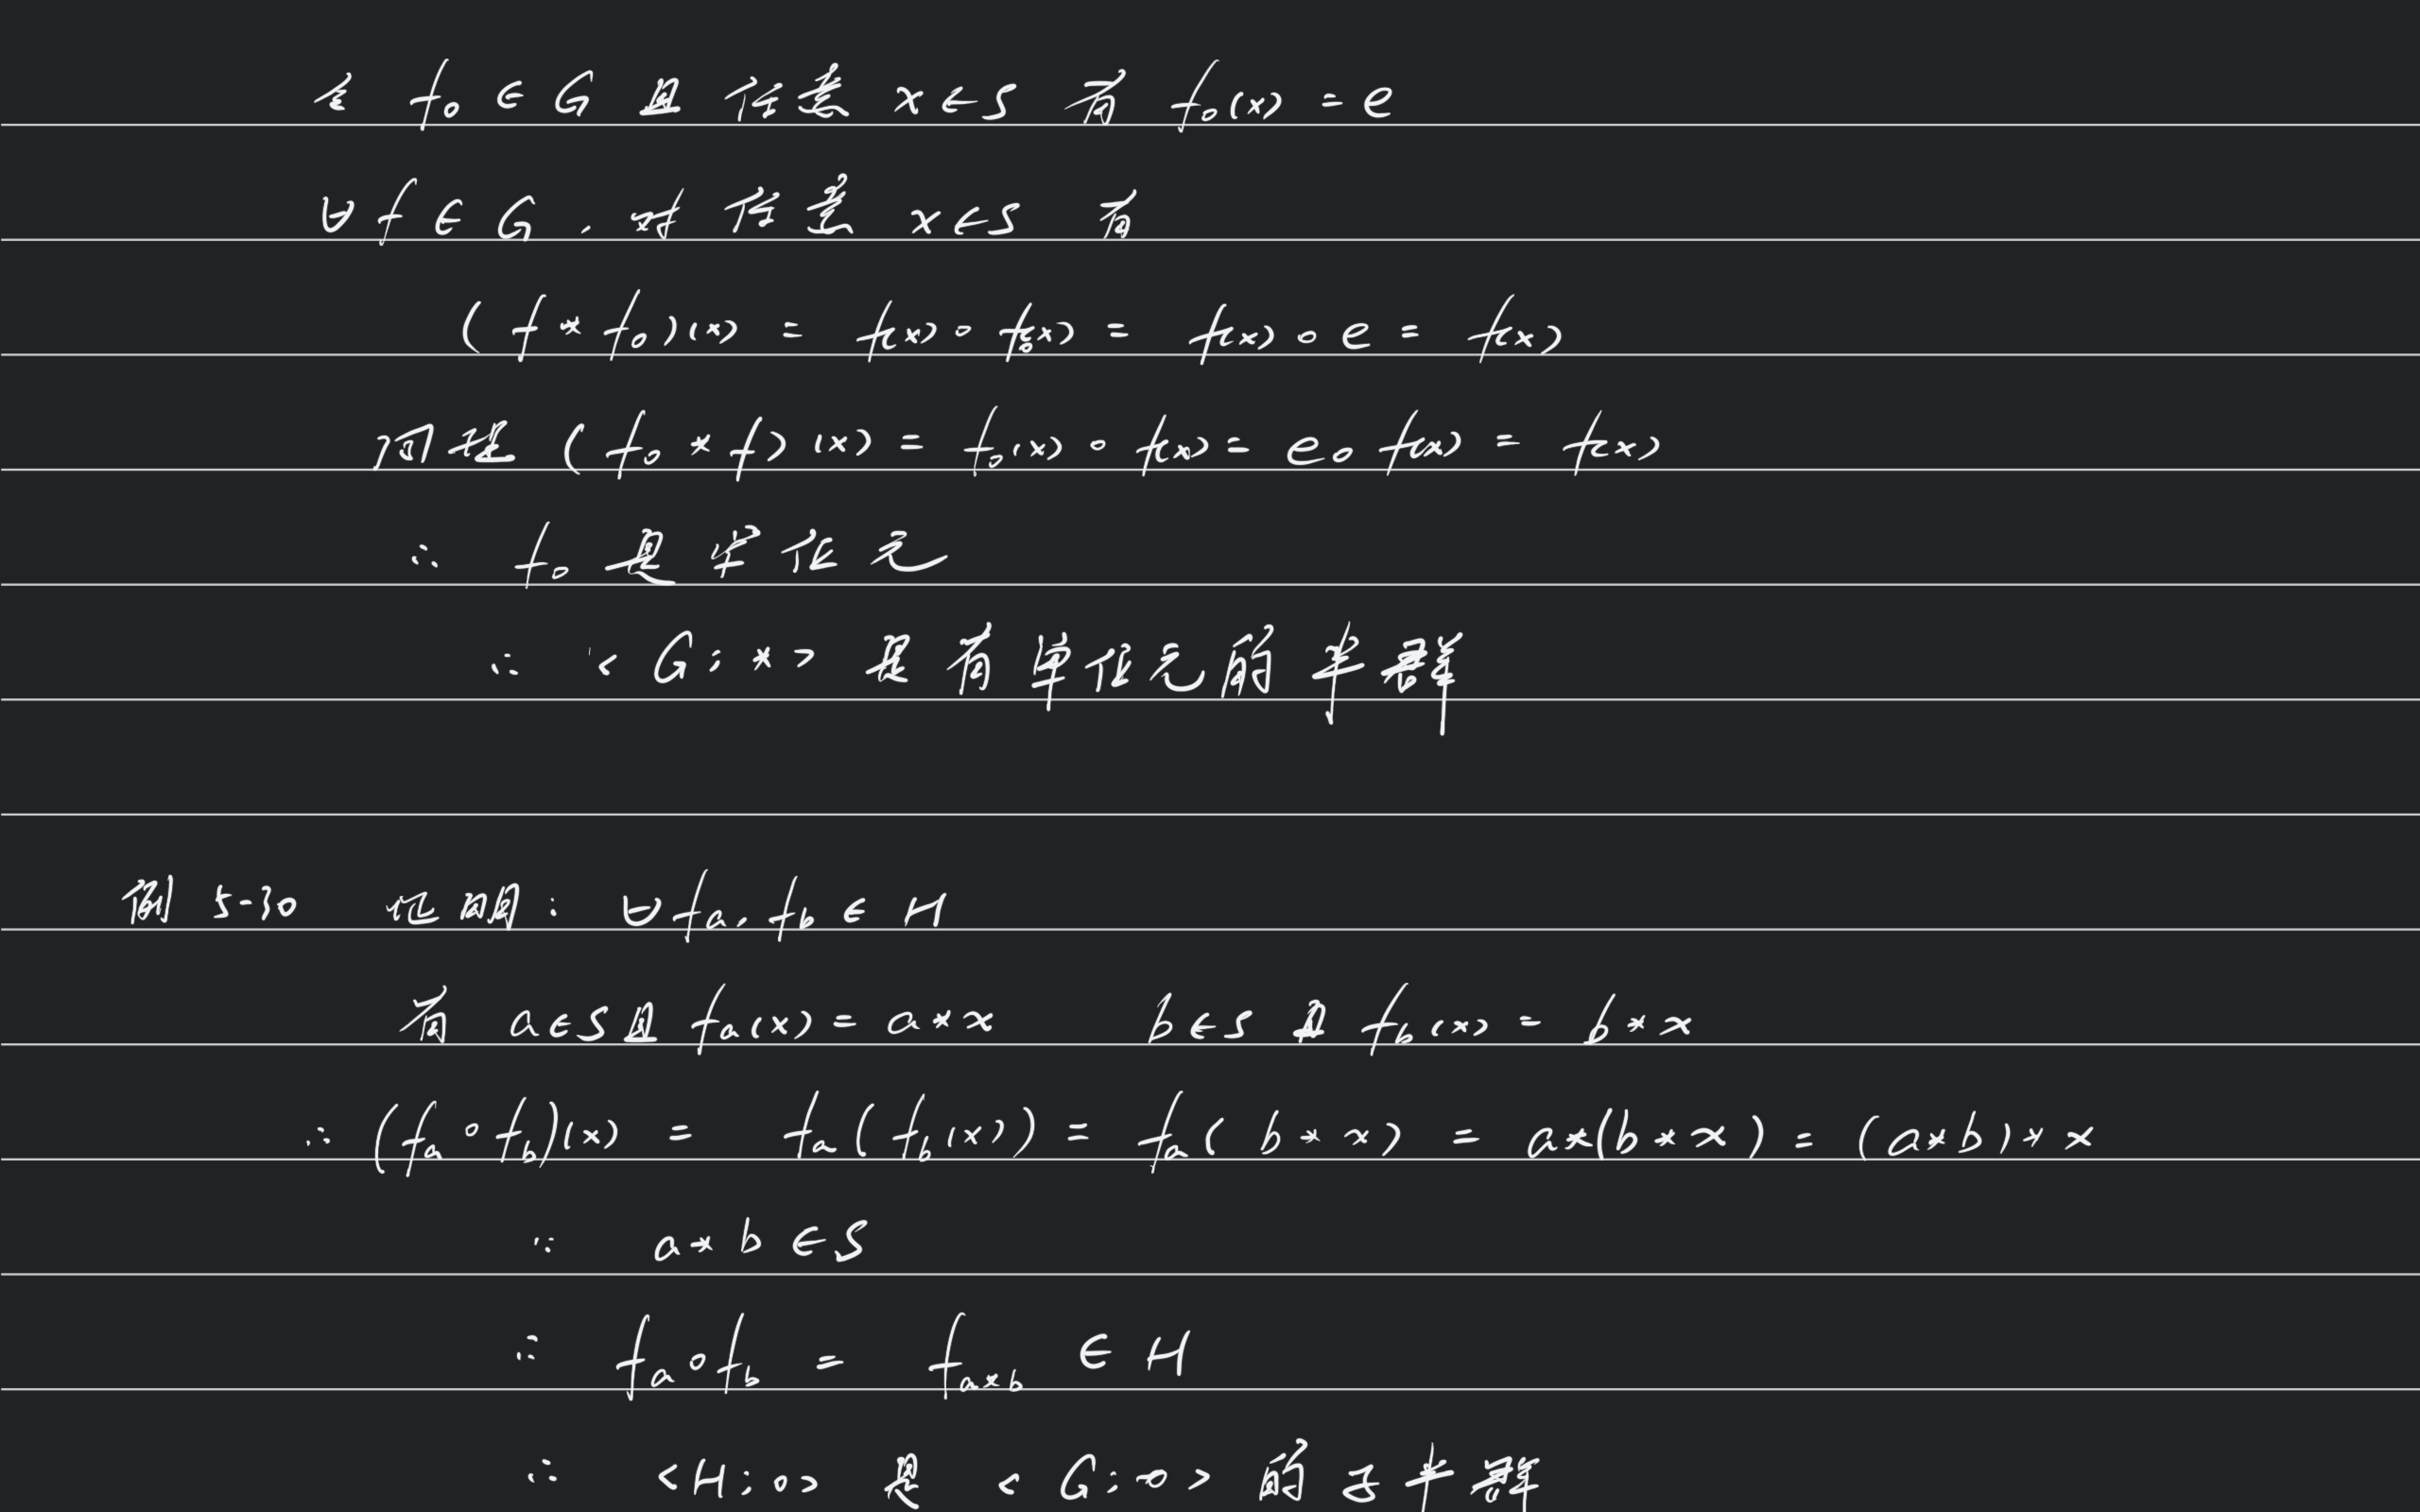 令 f₀ ∈ G 且 任意 x∈S 有 f₀(x) = e
∀f ∈ G, 对任意 x∈S 有
(f * f₀)(x) = f(x) ∘ f₀(x) = f(x) ∘ e = f(x)
同理 (f₀ * f)(x) = f₀(x) ∘ f(x) = e ∘ f(x) = f(x)
∴ f₀ 是单位元
∴ <G; *> 是有单位元的半群
例 5-30 证明: ∀fₐ, f_b ∈ H
有 a∈S且 fₐ(x) = a * x b∈S 且 f_b(x) = b * x
∴ (fₐ ∘ f_b)(x) = fₐ(f_b(x)) = fₐ(b * x) = a*(b * x) = (a*b) * x
∵ a * b ∈ S
∴ fₐ ∘ f_b = f_{a*b} ∈ H
∴ <H; ∘> 是 <G; ∘> 的子半群